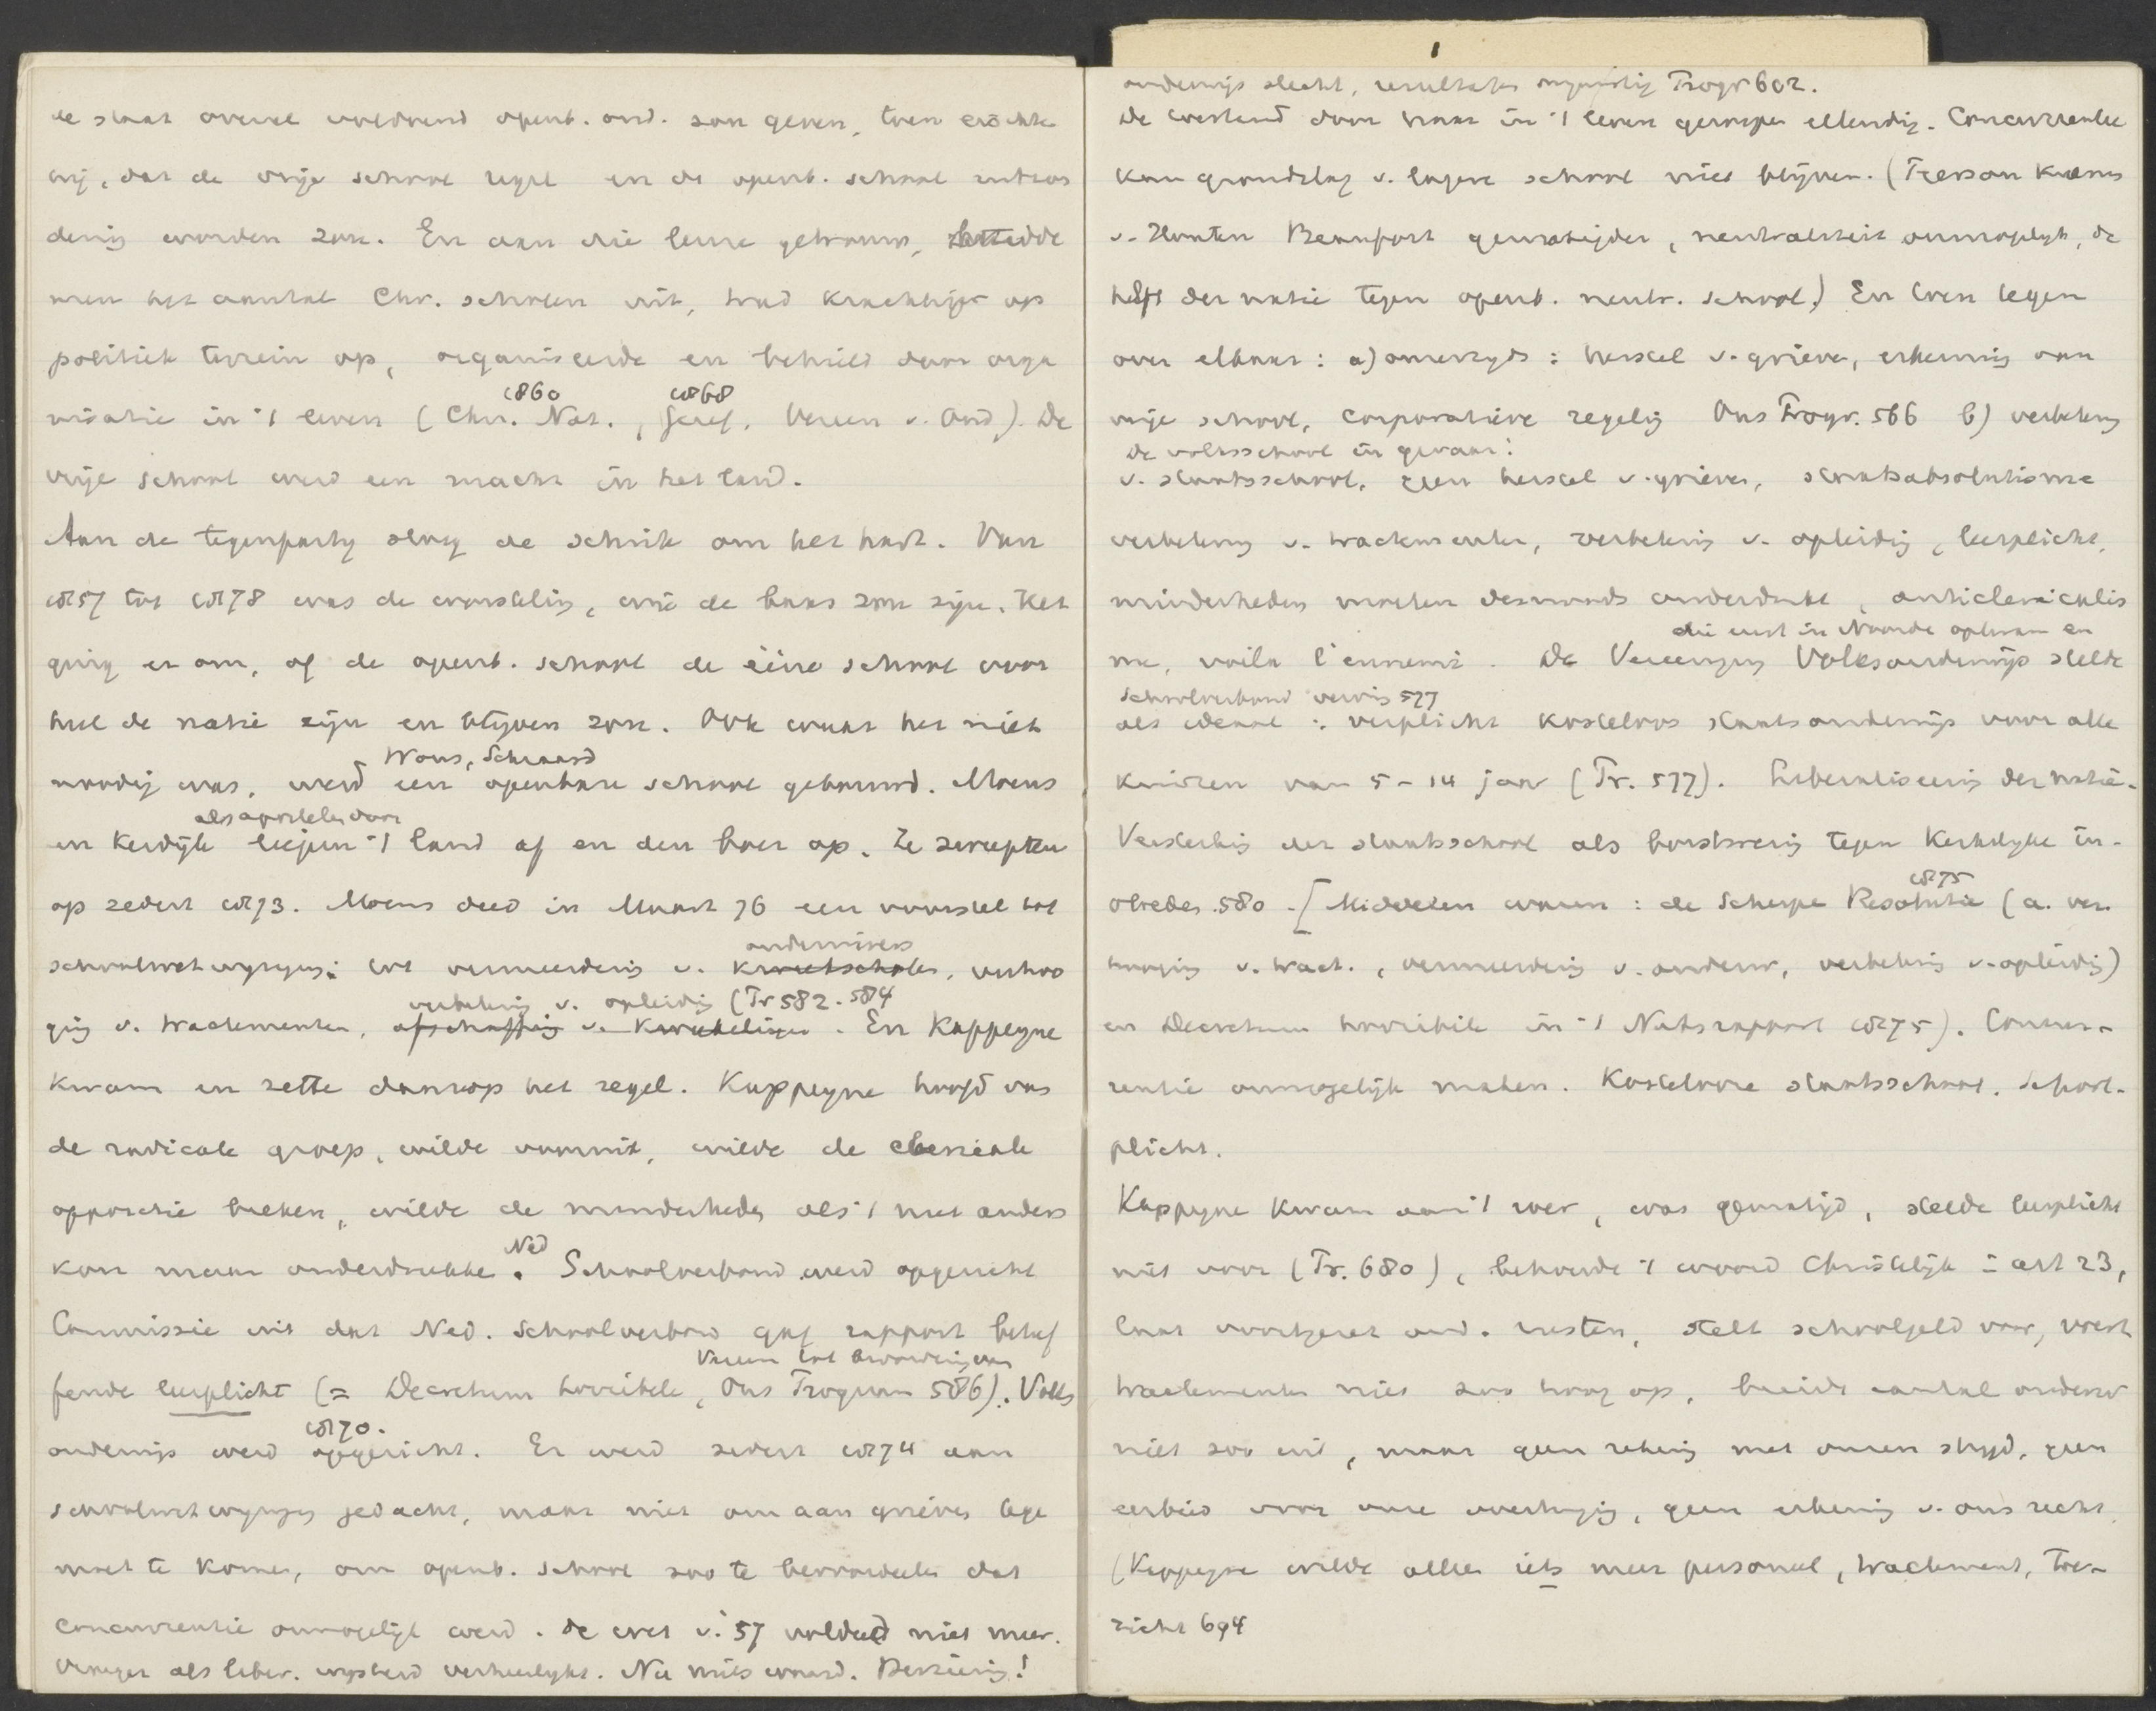 de staat overal voldoend openb. ond. zou geven, toen eischte
wij, dat de vrije school regel en de openb. school uitzon
dering worden zou. En aan die leuze getrouw, breidde
men het aantal Chr. scholen uit, trad krachtiger op
politiek terrein op, organiseerde en behield door orga
1860 1868
nisatie in 't leven (Chr. Nat., Geref. Vereen v. Ond.). De
vrije school werd een macht in het land.
Aan de tegenparty sloeg de schrik om het hart. Van
1857 tot 1878 was de worsteling, wie de baas zou zijn. Het
ging er om, of de openb. school de ééne school voor
heel de natie zijn en blijven zou. Ook waar het niet
Wons, Schraard
noodig was, werd een openbare school gebouwd. Moens
als apostelen door
en Kerdijk liepen 't land af en den boer op. Ze
op sedert 1873. Moens deed in Maart 76 een voorstel tot
onderwijzers
schoolwetwyziging: tot vermeerdering v. kweekscholen, verhoo
verbetering v. opleiding (Tr 582. 584
ging v. tractementen, afschaffing v. kweekelingen. En Kappeyne
kwam en zette daarop het zegel. Kappeyne hoofd van
de radicale groep, wilde vooruit, wilde de clericale
oppositie breken, wilde de minderheden als 't niet anders
Ned
kon maar onderdrukken. Schoolverbond werd opgericht
Commissie uit dat Ned. Schoolverbond gaf rapport betref
Vereen tot bevordering van
fende leerplicht (= Decretum horribile, Ons Program 586). Volks
1870.
onderwijs werd opgericht. Er werd sedert 1874 aan
schoolwetwyziging gedacht, maar niet om aan grieven tege
moet te komen, om openb. school zoo te bevoordeelen dat
concurrentie onmogelijk werd. De wet v. '57 voldeed niet meer.
Vroeger als liber. wysheid verheerlykt. Nu niets waard. Herziening!
onderwijs slecht, resultaten ongunstig Progr 602.
De toestand door haar in 't leven geroepen ellendig. Concurrentie
kan grondslag v. lagere school niet blijven. (
v. Houten Beaufort gematigder, neutraliteit onmogelyk, de
helft der natie tegen openb. neutr. school.) En toen tegen
over elkaar: a) onzerzyds: herstel v. grieven, erkenning van
vrije school, corporatieve regeling Ons Progr. 566 b) verbetering
De volksschool in gevaar!
v. staatsschool, geen herstel v. grieven, staatsabsolutisme
verbetering v. tractementen, verbetering v. opleiding, leerplicht,
minderheden moeten desnoods onderdrukt, anticlericalis
die eerst in Noorden opkwam en
me, voila l'ennemi. De Vereeniging Volksonderwijs stelde
Schoolverbond 577
als ideaal: verplicht kosteloos staatsonderwijs voor alle
kinderen van 5 - 14 jaar (Tr. 577). Liberaliseering der natie.
Versterking der staatsschool als borstwering tegen Kerkelyke in-
1875
vloeden. 580. [Middelen waren: de Scherpe Resolutie (a. ver
hooging v. tract., vermeerdering v. onderw, verbetering v. opleiding)
en Decretum horribile in 't Nutsrapport 1875). Concur-
rentie onmogelijk maken. Kostelooze staatsschool. School-
plicht.
Kappeyne kwam aan 't roer, was gematigd, stelde leerplicht
niet voor (Tr. 680), behoude 't woord Christelijk in art 23,
laat voortgezet ond. rusten, stelt schoolgeld voor, voert
tractementen niet zoo hoog op, breidt aantal onderw
niet zoo uit, maar geen rekening met onzen stryd, geen
eerbied voor onze overtuiging, geen erkenning v. ons recht.
(Kappeyne wilde alleen iets meer personeel, tractement, toe-
zicht 694